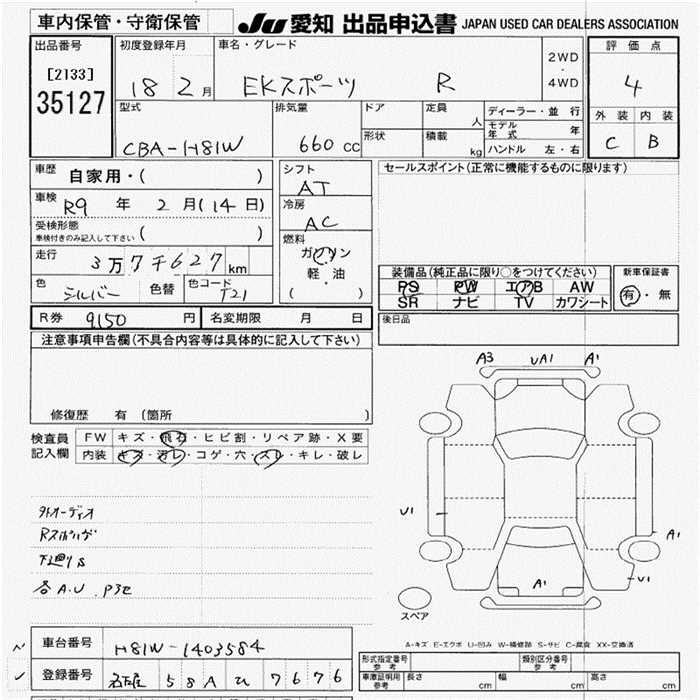 車内保管・守衛保管
JU 愛知 出品申込書 JAPAN USED CAR DEALERS ASSOCIATION
出品番号
[2133]
35127
初度登録年月
18 2月
車名・グレード
EKスポーツ R
2WD
・
4WD
評価点
4
外装 内装
C B
型式
CBA-H81W
排気量
660 cc
ドア
定員
人
形状
積載
kg
ディーラー・並行
モデル年式 年
ハンドル 左・右
車歴
自家用・( )
車検
R9 年 2 月(14日)
受検形態
車検付きのみ記入して下さい ( )
走行
3万7千627 km
色 シルバー 色替 色コード T21
シフト
AT
冷房
AC
燃料
ガソリン
軽・油
( )
セールスポイント(正常に機能するものに限ります)
装備品(純正品に限り○をつけてください)
PS PW エアB AW
SR ナビ TV カワシート
新車保証書
有・無
後日品
R券 9,150 円
名変期限 月 日
注意事項申告欄(不具合内容等は具体的に記入して下さい)
修復歴 有 (箇所 )
検査員記入欄
FW キズ・飛石・ヒビ割・リペア跡・X要
内装 キズ・汚レ・コゲ・穴・スレ・キレ・破レ
外オーディオ
Rスポイラ
下廻りS
各A.U.P3セ
A3 UA1 A1
U1
A1
A1
U1
スペア
A-キズ E-エクボ U-凹み W-補修跡 S-サビ C-腐食 XX-交換済
車台番号 H81W-1403584
登録番号 名古屋 58A ひ 7676
形式指定番号 参考
類別区分番号 参考
車庫証明用 参考 長さ cm 幅 cm 高さ cm